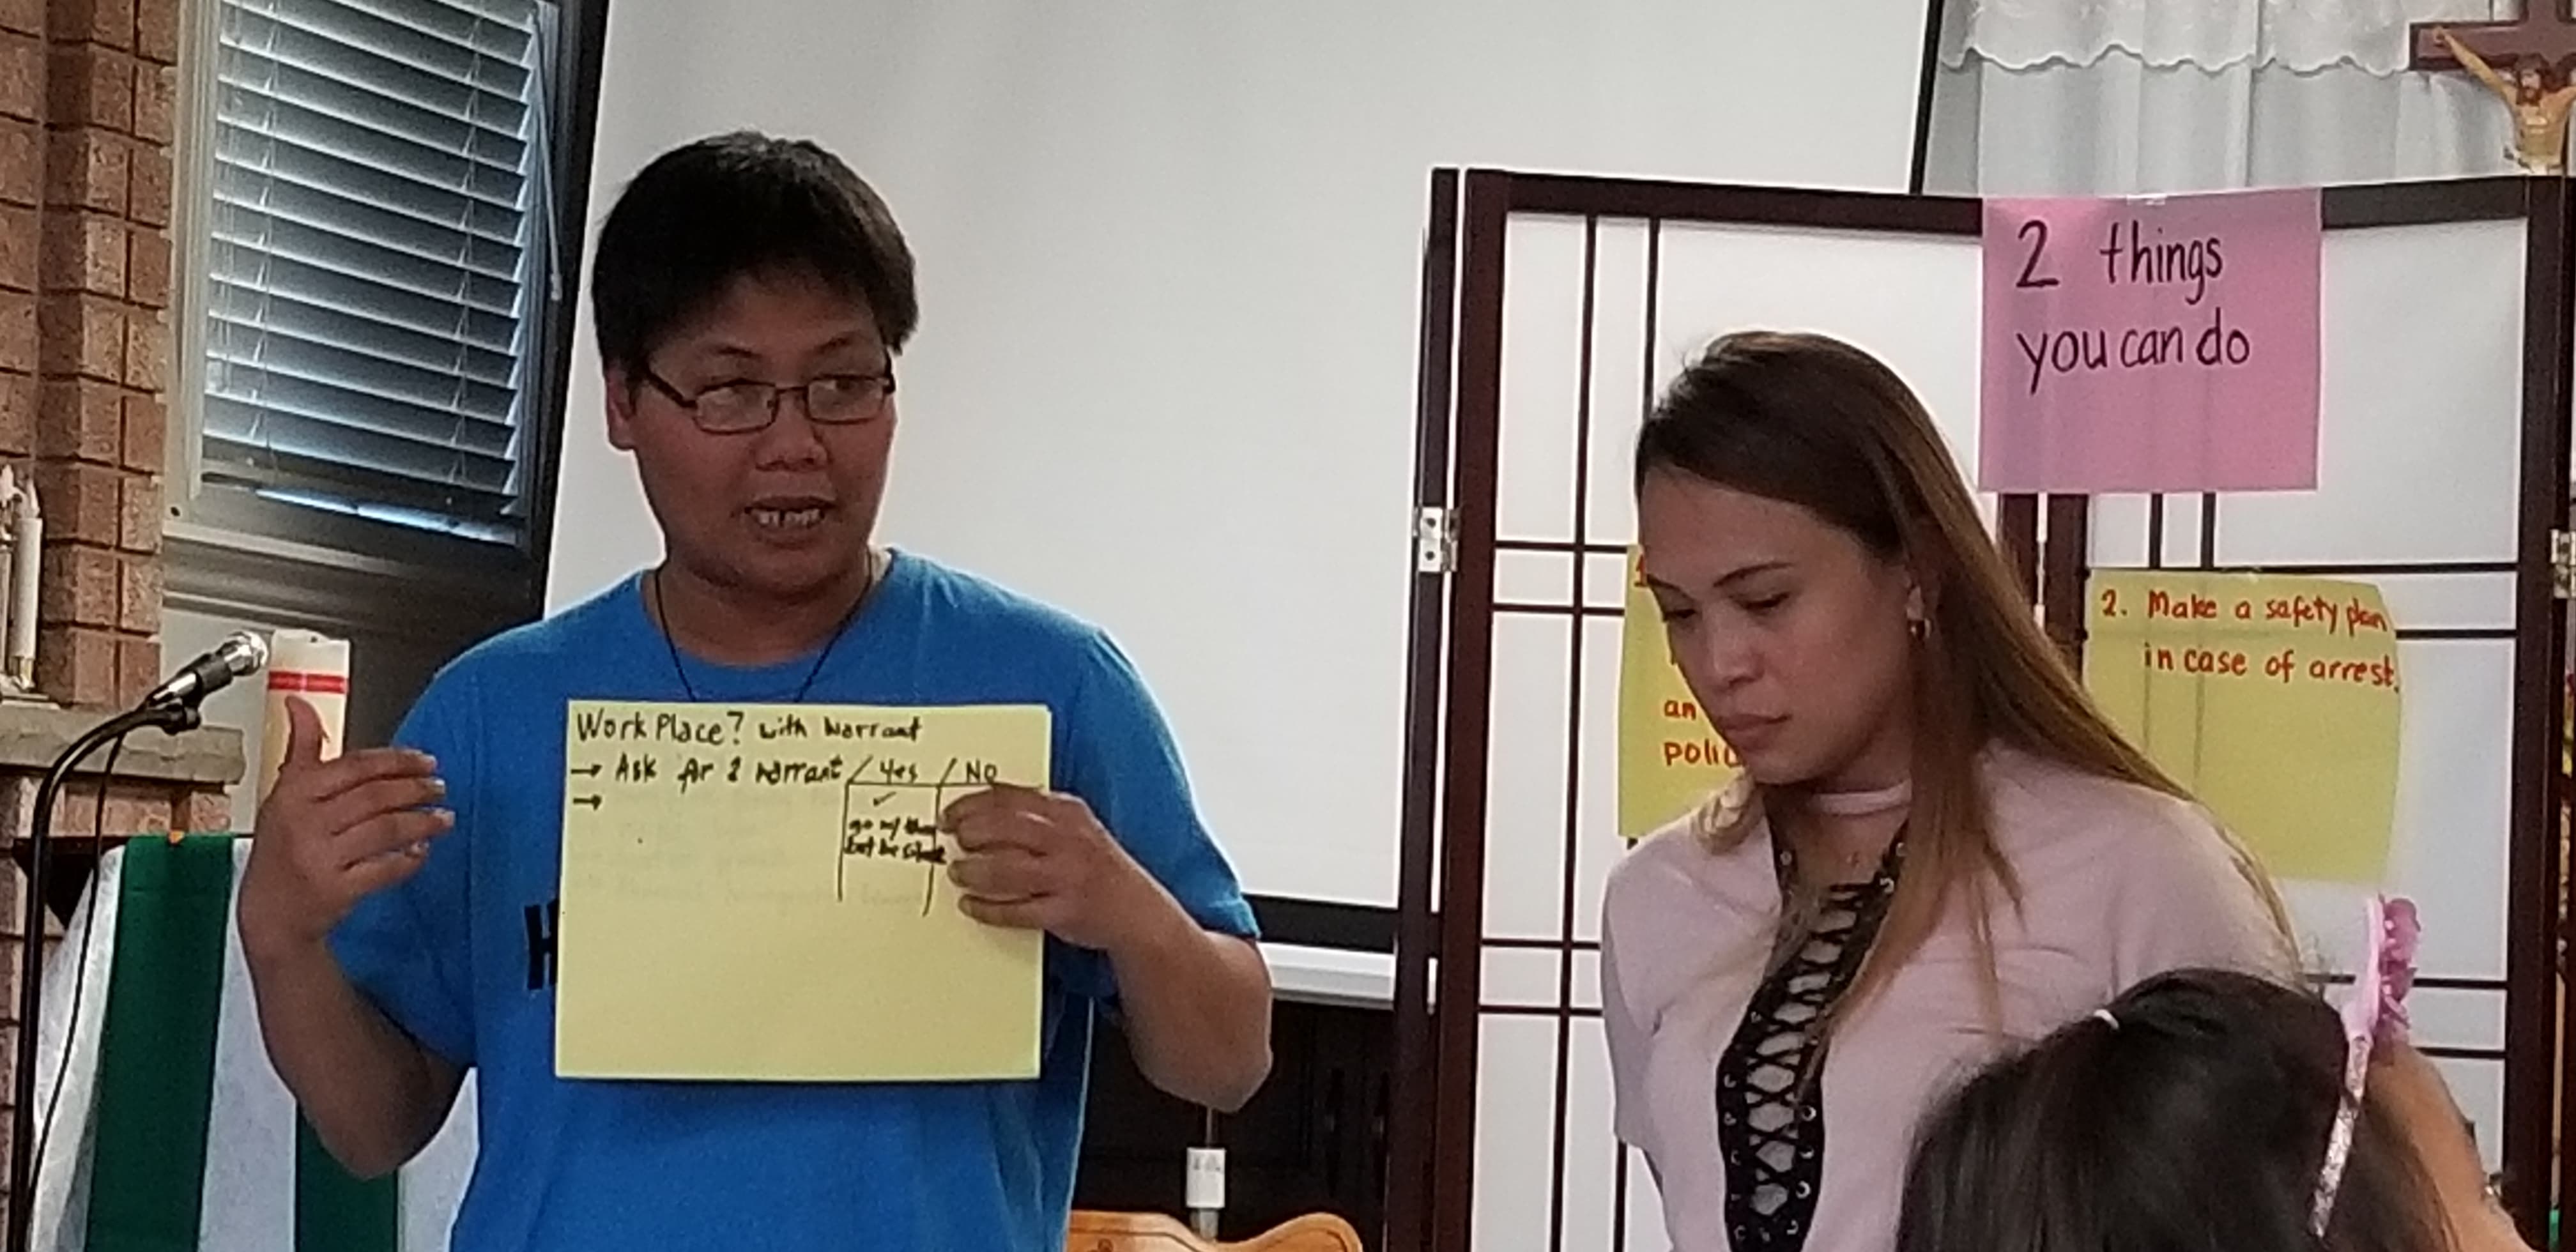 Work Place? with Warrant
→ Ask for a warrant / Yes / No
→
✓
go w/ them
but be silent
H
2 things
you can do
1.
an
polic
2. Make a safety plan
in case of arrest.